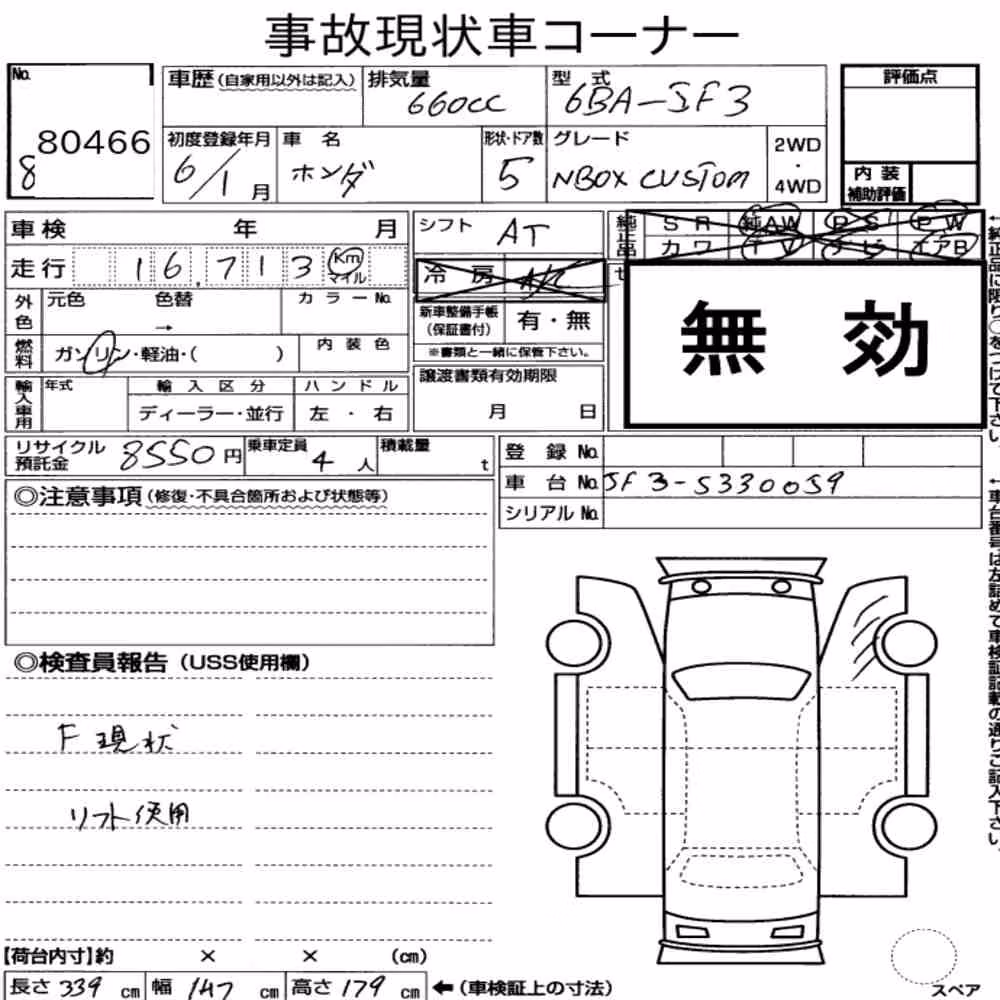 事故現状車コーナー
No. 80466
8
車歴(自家用以外は記入) 排気量 660cc 型式 6BA-JF3 評価点
初度登録年月 6/1月 車名 ホンダ 形状・ドア数 5 グレード NBOX CUSTOM 2WD・4WD
内装補助評価
車検 年 月
走行 16,713 Km マイル
外色 元色 色替 → カラーNo.
燃料 ガソリン・軽油・( ) 内装色
輸入車用 年式 輸入区分 ディーラー・並行 ハンドル 左・右
シフト AT
冷房 A/C
新車整備手帳(保証書付) 有・無
※書類と一緒に保管下さい。
譲渡書類有効期限
月 日
純正品 SR 純AW PS PW
カワ TV ナビ エアB
無効
←純正品に限り○をつけて下さい。
リサイクル預託金 8550円 乗車定員 4人 積載量 t
登録No.
車台No. JF3-5330059
シリアルNo.
←車台番号は左詰めで車検証記載の通りご記入下さい。
◎注意事項(修復・不具合箇所および状態等)
◎検査員報告(USS使用欄)
F 現状
リフト使用
【荷台内寸】約 × × (cm)
長さ 339 cm 幅 147 cm 高さ 179 cm ←(車検証上の寸法)
スペア